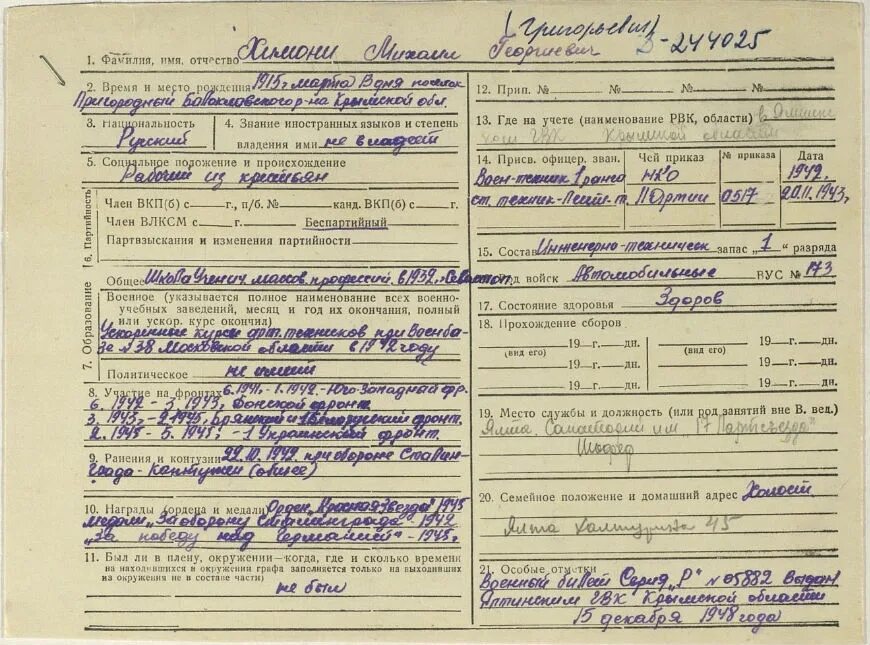 (Григорьевич)
З-244025
1. Фамилия, имя, отчество Химони Михаил Георгиевич
2. Время и место рождения 1915 г. марта 8 дня поселок
Пригородный Балаклавского р-на Крымской обл.
3. Национальность
Русский
4. Знание иностранных языков и степень
владения ими не владеет
5. Социальное положение и происхождение
Рабочий из крестьян
6. Партийность
Член ВКП(б) с г., п/б. № канд. ВКП(б) с г.
Член ВЛКСМ с г. Беспартийный
Партвзыскания и изменения партийности
7. Образование
Общее Школа Ученич. массов. профессий в 1932 г. Севастоп.
Военное (указывается полное наименование всех военно-
учебных заведений, месяц и год их окончания, полный
или ускор. курс окончил)
Ускоренные курсы арт. техников при Военба-
зе № 38 Московской области в 1942 году
Политическое не имеет
8. Участие на фронтах 6.1941-1.1942 - Юго-Западный фр.
6. 1942 - 3. 1943, Донской фронт
3. 1943, - 2 1945, Брянский и 1 Белорусский фронт.
2. 1945 - 5. 1945, - 1 Украинский фронт.
9. Ранения и контузии 22.10.1942 при обороне Сталин-
града - Контужен (общее)
10. Награды (ордена и медали) Орден „Красная Звезда" 1945
медали „За оборону Сталинграда - 1942
„За победу над Германией" - 1945 г.
11. Был ли в плену, окружении—когда, где и сколько времени
на находившихся в окружении графа заполняется только на выходивших
из окружения не в составе части)
не был
12. Прип. № № № №
13. Где на учете (наименование РВК, области) в
ГВК Крымской области
14. Присв. офицер. зван. Чей приказ № приказа Дата
Воен-техник 1 ранга НКО 1942.
ст. техник-Лейт-т. 11 Армии 0517 20.11.1943 г.
15. Состав Инженерно-техническ запас „1" разряда
Род войск Автомобильные ВУС № 173
17. Состояние здоровья Здоров
18. Прохождение сборов
19 —г. —дн. 19 —г. —дн.
(вид его) (вид его)
19 —г. —дн. 19 —г. —дн.
19 —г. —дн. 19 —г. —дн.
19. Место службы и должность (или род занятий вне В. вед.)
Ялта. Санаторий им. „17 Партсъезда"
Шофер
20. Семейное положение и домашний адрес Холост.
Ялта Халтурина 45
21. Особые отметки
Военный билет Серия „Р" № 05882 выдан
Ялтинским ГВК Крымской области
15 декабря 1948 года